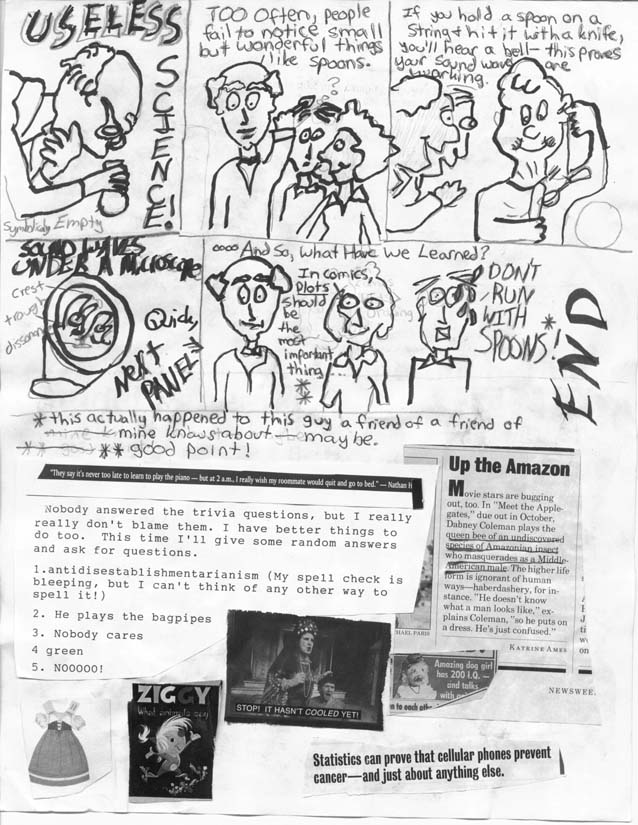 USELESS
SCIENCE!
Symbolicly Empty
TOO Often, people
fail to notice small
but wonderful things
like spoons.
?
If you hold a spoon on a
String & hit it with a knife,
you'll hear a bell— this proves
your sound waves are
working.
SOUND WAVES
UNDER A Microscope
Crest
trough
dissonance
Quick,
NEXT
PANEL→
oooo And So, What Have We Learned?
In comics,
Plots
should
be
the
most
important
thing
**
DON'T
RUN
WITH
SPOONS!
*
END
*this actually happened to this guy a friend of a friend of
mine knows about maybe.
** good point!
"They say it's never too late to learn to play the piano — but at 2 a.m., I really wish my roommate would quit and go to bed." — Nathan H
Nobody answered the trivia questions, but I really
really don't blame them. I have better things to
do too. This time I'll give some random answers
and ask for questions.
1.antidisestablishmentarianism (My spell check is
bleeping, but I can't think of any other way to
spell it!)
2. He plays the bagpipes
3. Nobody cares
4 green
5. NOOOOO!
Up the Amazon
Movie stars are bugging
out, too. In "Meet the Apple-
gates," due out in October,
Dabney Coleman plays the
queen bee of an undiscovered
species of Amazonian insect
who masquerades as a Middle-
American male. The higher life
form is ignorant of human
ways—haberdashery, for in-
stance. "He doesn't know
what a man looks like," ex-
plains Coleman, "so he puts on
a dress. He's just confused."
KATRINE AMES
HAEL PARIS
Amazing dog girl
has 200 I.Q. —
and talks
NEWSWEE
ZIGGY
What animals say
STOP! IT HASN'T COOLED YET!
Statistics can prove that cellular phones prevent
cancer—and just about anything else.